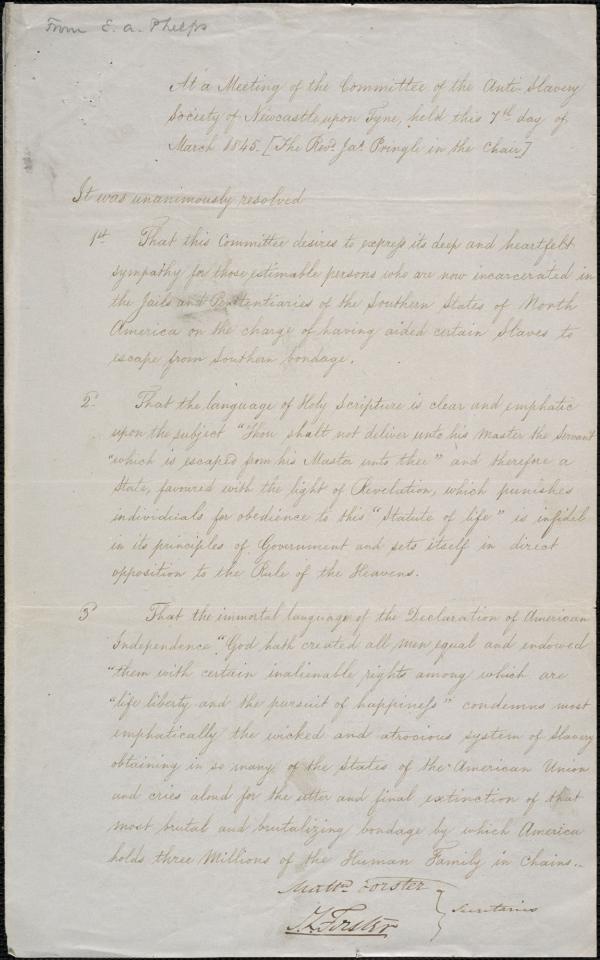 From E. A. Phelps
At a Meeting of the Committee of the Anti Slavery
Society of Newcastle upon Tyne, held this 7th day of
March 1845. [The Revd. Jas. Pringle in the Chair]
It was unanimously resolved
1st. That this Committee desires to express its deep and heartfelt
sympathy for those estimable persons who are now incarcerated in
the Jails and Penitentiaries of the Southern States of North
America on the charge of having aided certain Slaves to
escape from Southern bondage.
2. That the language of Holy Scripture is clear and emphatic
upon the subject "Thou shalt not deliver unto his Master the Servant
"which is escaped from his Master unto thee" and therefore a
State, favoured with the light of Revelation, which punishes
individuals for obedience to this "Statute of life" is infidel
in its principles of Government and sets itself in direct
opposition to the Rule of the Heavens.
3 That the immortal language of the Declaration of American
Independence "God hath created all men equal and endowed
"them with certain inalienable rights among which are
"life liberty and the pursuit of happiness" condemns most
emphatically the wicked and atrocious system of Slavery
obtaining in so many of the States of the American Union
and cries aloud for the utter and final extinction of that
most brutal and brutalizing bondage by which America
holds three Millions of the Human Family in Chains..
Forster
Forster } Secretaries